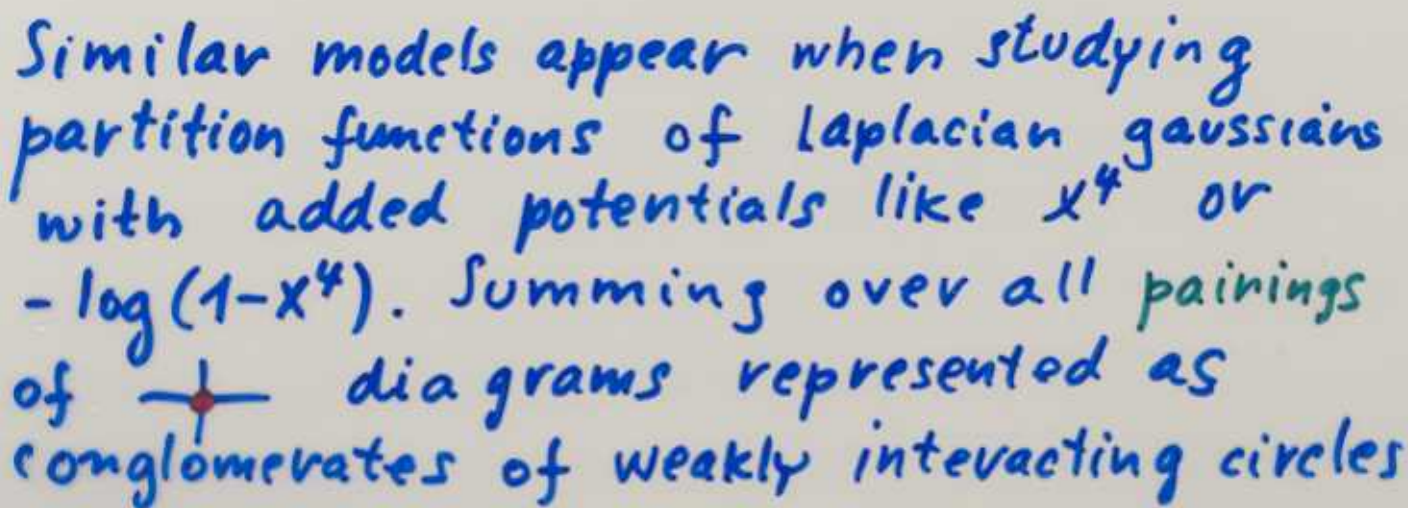 Similar models appear when studying
partition functions of Laplacian gaussians
with added potentials like x⁴ or
- log (1-x⁴). Summing over all pairings
of diagrams represented as
conglomerates of weakly interacting circles